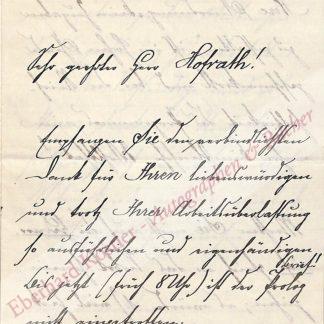 Sehr geehrter Herr Hofrath!
Empfangen Sie den verbindlichsten
Dank für Ihren liebenswürdigen
und trotz Ihrer Arbeitsüberlastung
so ausführlichen und eigenhändigen
Brief!
Bis jetzt (früh 8 Uhr) ist der Prolog
nicht eingetroffen.
Eberhard Köstler - Autographen & Bücher